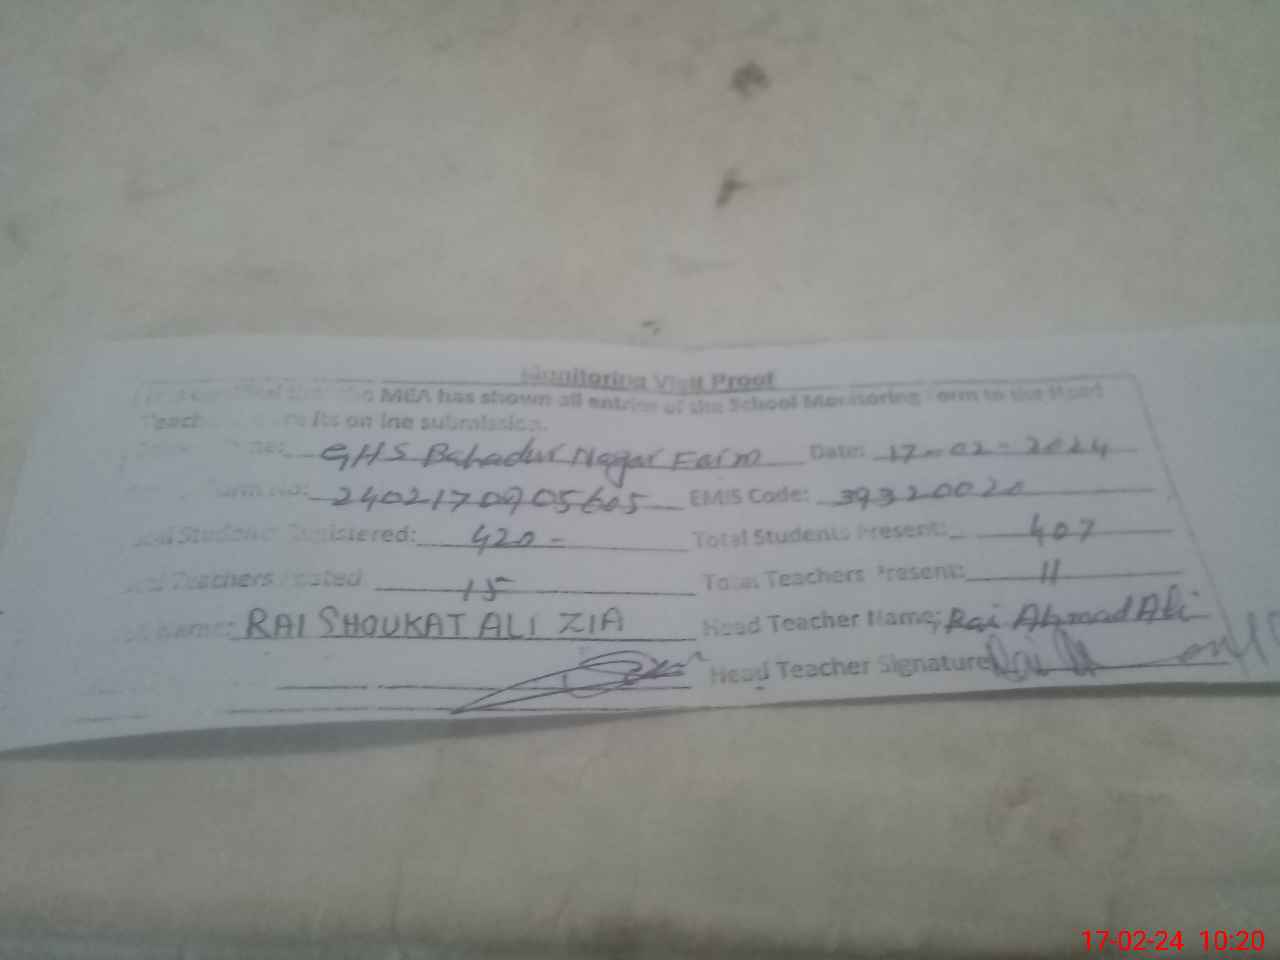 Monitoring Visit Proof
MEA has shown all entries of the School Monitoring Form to the Head
Teach its on line submission.
GHS Bahadur Nagar Farm Date: 17-02-2024
Form No: 2402170905605 EMIS Code: 39320020
Students Registered: 420 - Total Students Present: 407
Teachers Posted 15 Total Teachers Present: 11
Name: RAI SHOUKAT ALI ZIA Head Teacher Name: Rai Ahmad Ali
Head Teacher Signature
17-02-24 10:20